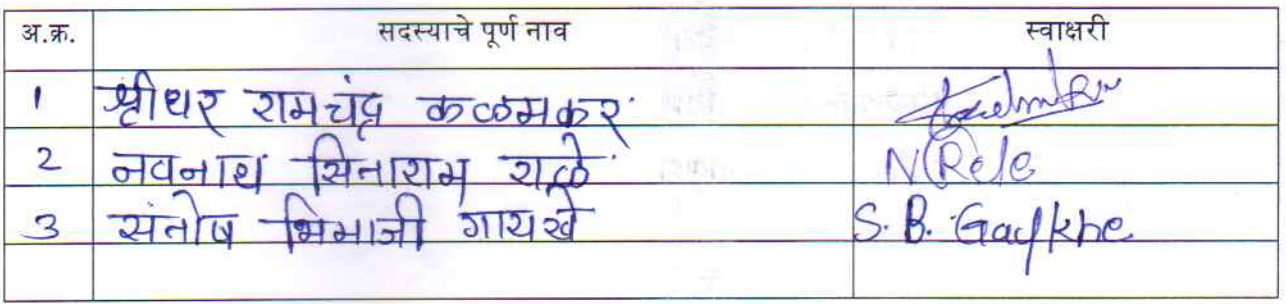 अ.क्र. सदस्याचे पूर्ण नाव स्वाक्षरी
1 श्रीधर रामचंद्र कळमकर
2 नवनाथ सिताराम राळे N Rele
3 संतोष भिमाजी गायखे S. B. Gaykhe